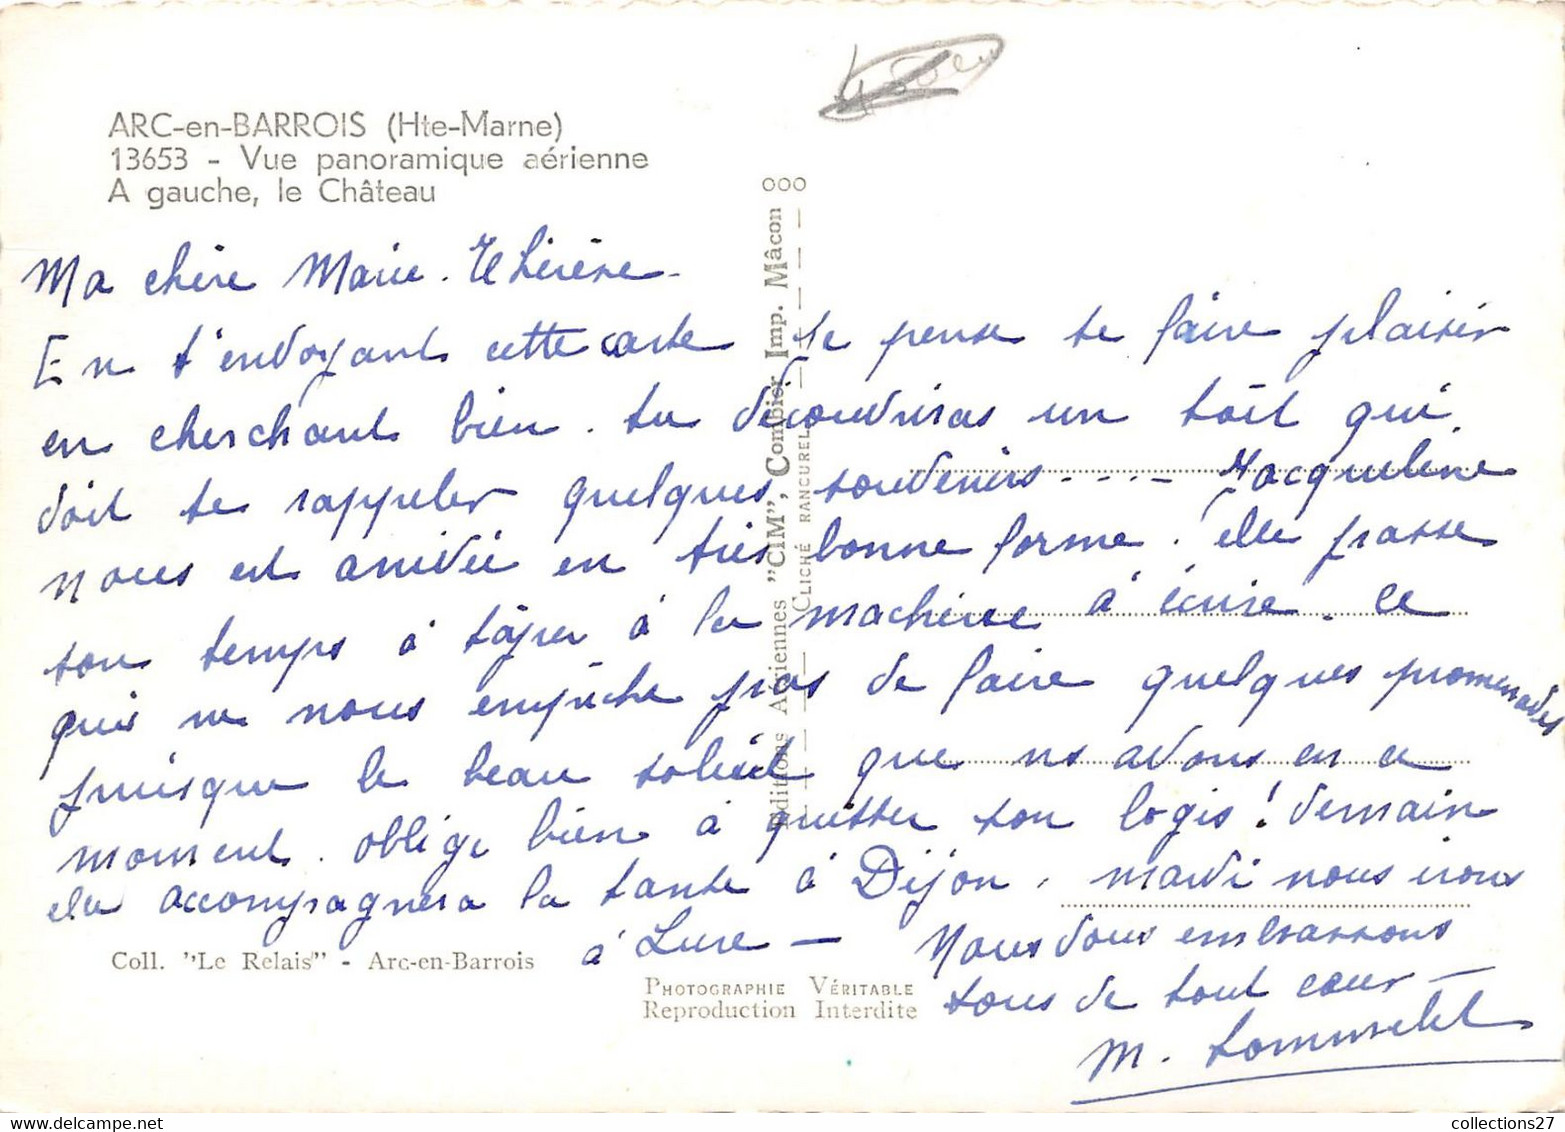 ARC-en-BARROIS (Hte-Marne)
13653 - Vue panoramique aérienne
A gauche, le Château
Ma chère Marie-Thérèse -
En t'envoyant cette carte je pense te faire plaisir
en cherchant bien. tu découvriras un toît qui
doit te rappeler quelques souvenirs .... Jacqueline
nous est arrivée en très bonne forme. elle passe
son temps à taper à la machine à écrire. ce
qui ne nous empêche pas de faire quelques promenades
puisque le beau soleil que ns avons en ce
moment. oblige bien à quitter son logis! demain
elle accompagnera la tante à Dijon. mardi nous irons
à Lure — Nous vous embrassons
tous de tout cœur —
M.
Coll. "Le Relais" - Arc-en-Barrois
PHOTOGRAPHIE VÉRITABLE
Reproduction Interdite
Editions Aériennes "CIM", Combier Imp. Mâcon
CLICHÉ RANCUREL
collections27